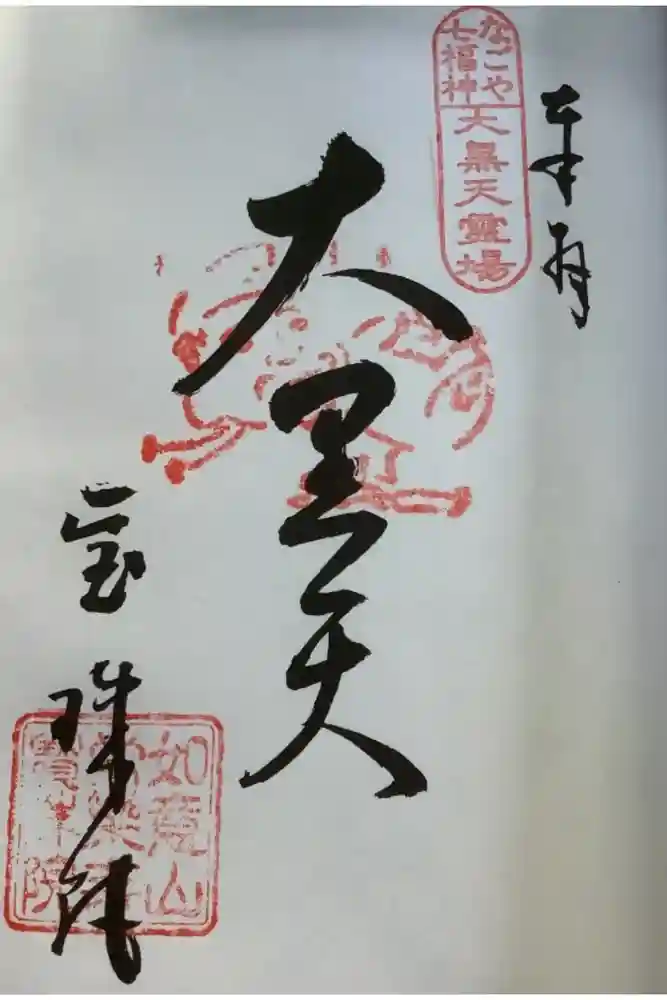 奉拝
なごや
七福神
大黒天靈場
大黒天
宝珠院
如意山
常樂寺
寶珠院